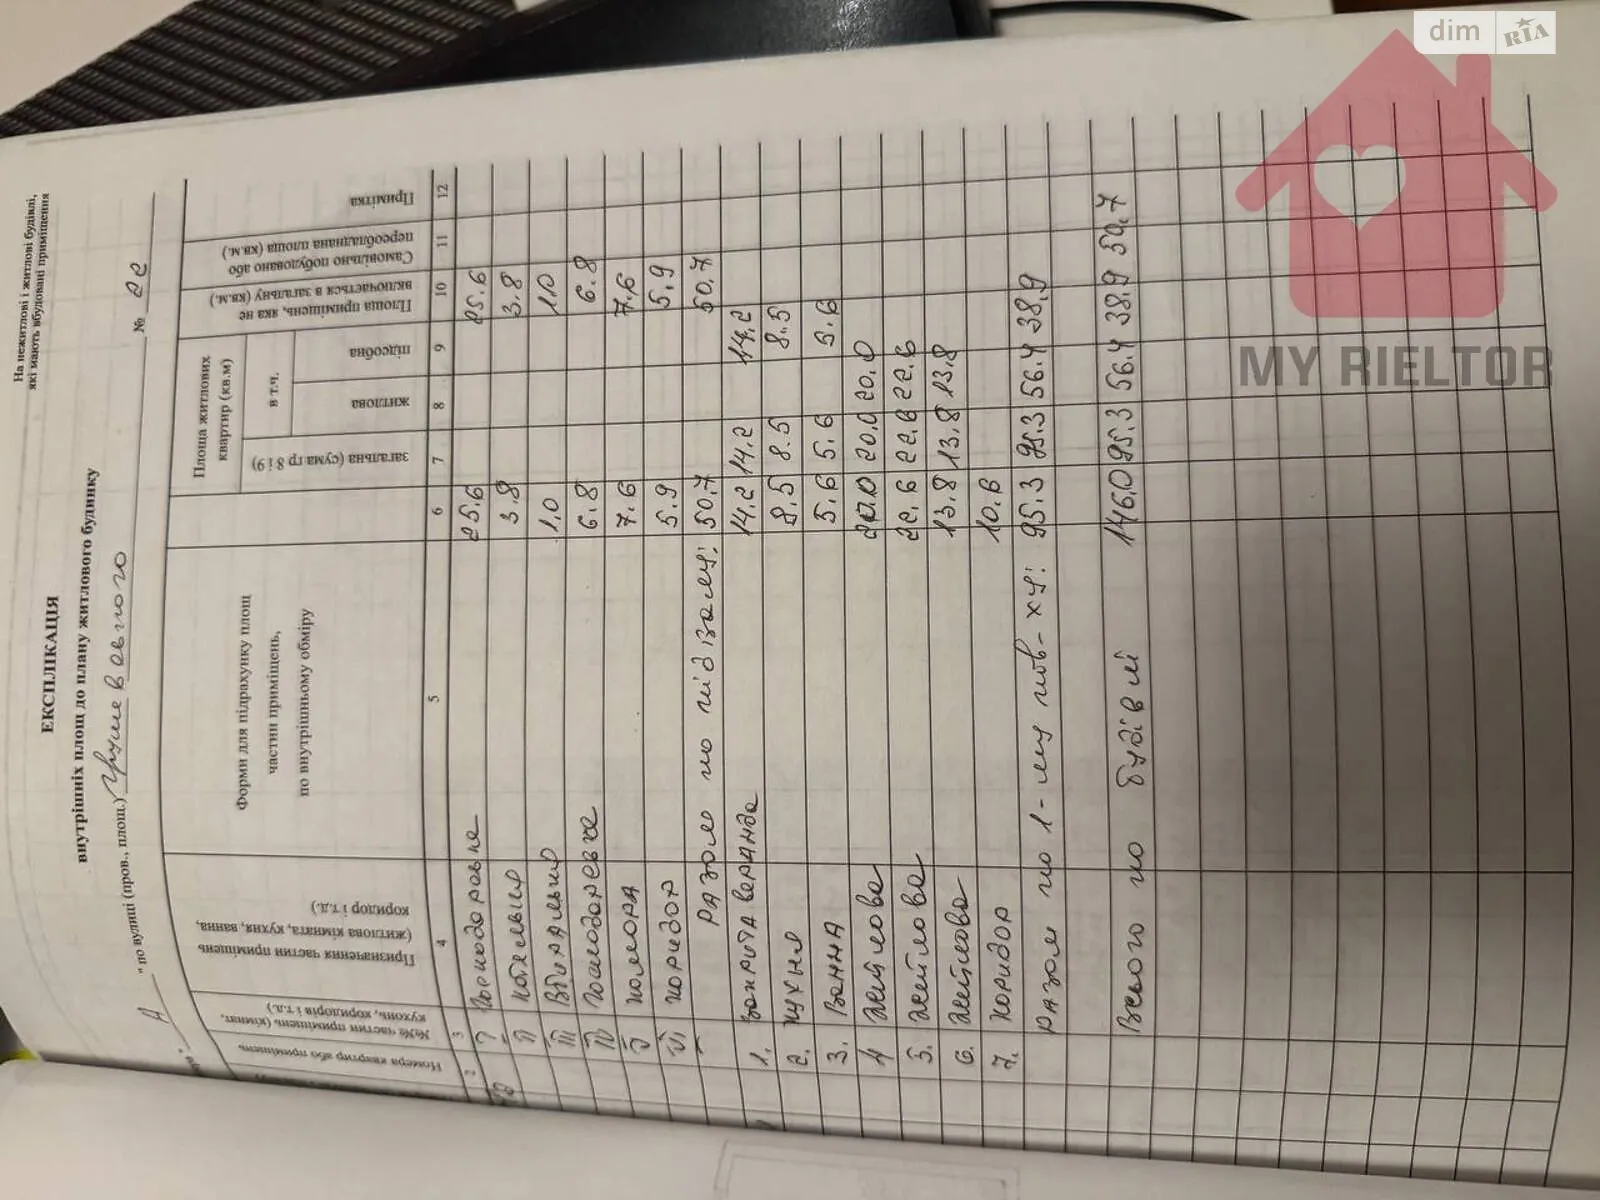 На нежитлові і житлові будівлі,
які мають вбудовані приміщення
ЕКСПЛІКАЦІЯ
внутрішніх площ до плану житлового будинку
А " по вулиці (пров., площ.) Грушевського №
Номера квартир або приміщень
№№ частин приміщень (кімнат, кухонь, коридорів і т.д.)
Призначення частин приміщень (житлова кімната, кухня, ванна, коридор і т.д.)
Форми для підрахунку площ
частин приміщень,
по внутрішньому обміру
Площа житлових
квартир (кв.м)
загальна (сума гр 8 і 9)
в т.ч.
житлова
підсобна
Площа приміщень, яка не включається в загальну (кв.м.)
Самовільно побудовано або переобладнана площа (кв.м.)
Примітка
2 3 4 5 6 7 8 9 10 11 12
I 25.6 25.6
II котельня 3.8 3.8
III Вбиральня 1.0 1.0
IV 6.8 6.8
V комора 7.6 7.6
VI коридор 5.9 5.9
Разом по підвалу: 50.7 50.7
1. Закрита веранда 14.2 14.2 14.2
2. кухня 8.5 8.5 8.5
3. Ванна 5.6 5.6 5.6
4 житлова 20.0 20.0 20.0
5. житлова 22.6 22.6 22.6
6. житлова 13.8 13.8 13.8
7. коридор 10.6
Разом по 1-му пов-ху: 95.3 95.3 56.4 38.9
Всього по будівлі 146.0 95.3 56.4 38.9 50.7
dim RIA
MY RIELTOR